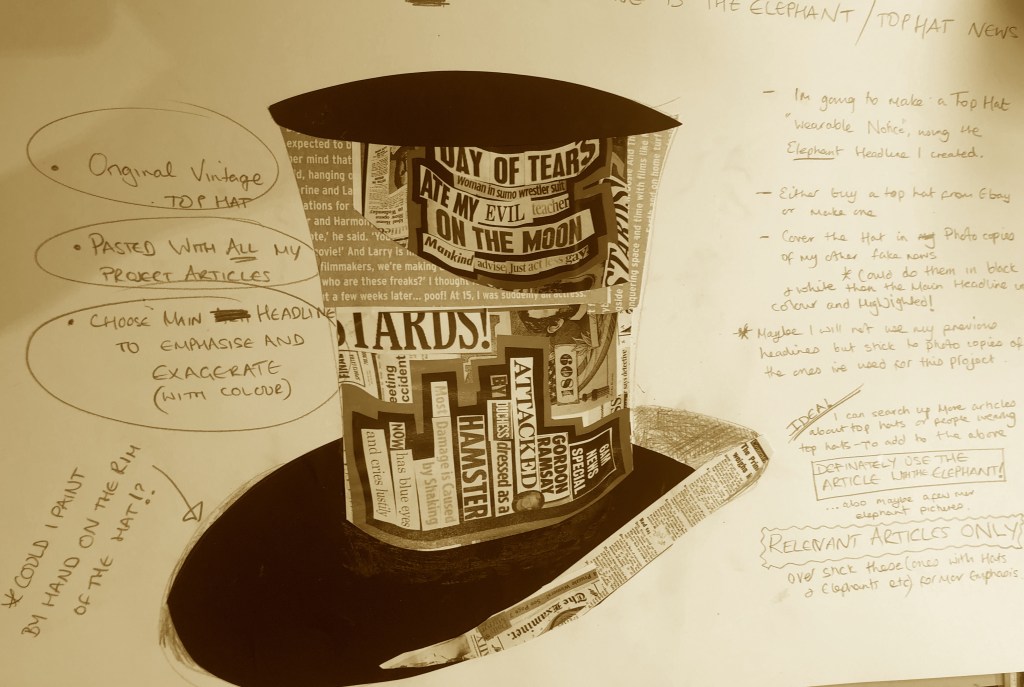 IS THE ELEPHANT / TOP HAT NEWS
• Original Vintage
TOP HAT
• PASTED WITH ALL MY
PROJECT ARTICLES
• CHOOSE MAIN HEADLINE
TO EMPHASISE AND
EXAGERATE
(WITH COLOUR)
* COULD I PAINT
BY HAND ON THE RIM
OF THE HAT!?
expected to b
er mind that
d, hanging o
rine and La
ations for
r and Harmon
ote,' he said. 'You
ovie!' And Larry is h
filmmakers, we're making
who are these freaks?' I thought
t a few weeks later... poof! At 15, I was suddenly an actress.
DAY OF TEARS
woman in sumo wrestler suit
ATE MY EVIL teacher
ON THE MOON
Mankind advise, just act less gay
nquering space and time with films like
STARDS!
eeting
ccident
GOSI
ATTACKED
BY
DUCHESS dressed as a
HAMSTER
GORDON
RAMSAY
CAN
NEWS
SPECIAL
Most Damage is Caused
by Shaking
NOW has blue eyes
and cries lustily
The Examiner.
- Im going to make a Top Hat
"Wearable Notice", using the
Elephant Headline I created.
- Either buy a top hat from Ebay
or make one
- Cover the Hat in Photo copies
of my other fake news
* Could do them in black
& white then the Main Headline in
colour and Highlighted!
* Maybe I will not use my previous
headlines but stick to photo copies of
the ones ive used for this project.
IDEA!
I can search up More articles
about top hats or people wearing
top hats - To add to the above
DEFINATELY USE THE
ARTICLE WITH THE ELEPHANT!
... also maybe a few more
elephant pictures.
RELEVANT ARTICLES ONLY
Over stick these (ones with Hats
& Elephants etc) for More Emphasis